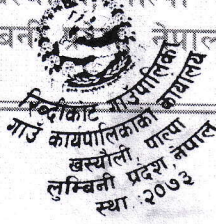 रिब्दीकोट गाउँपालिका
गाउँ कार्यपालिकाको कार्यालय
खस्यौली, पाल्पा
लुम्बिनी प्रदेश नेपाल
स्था २०७३